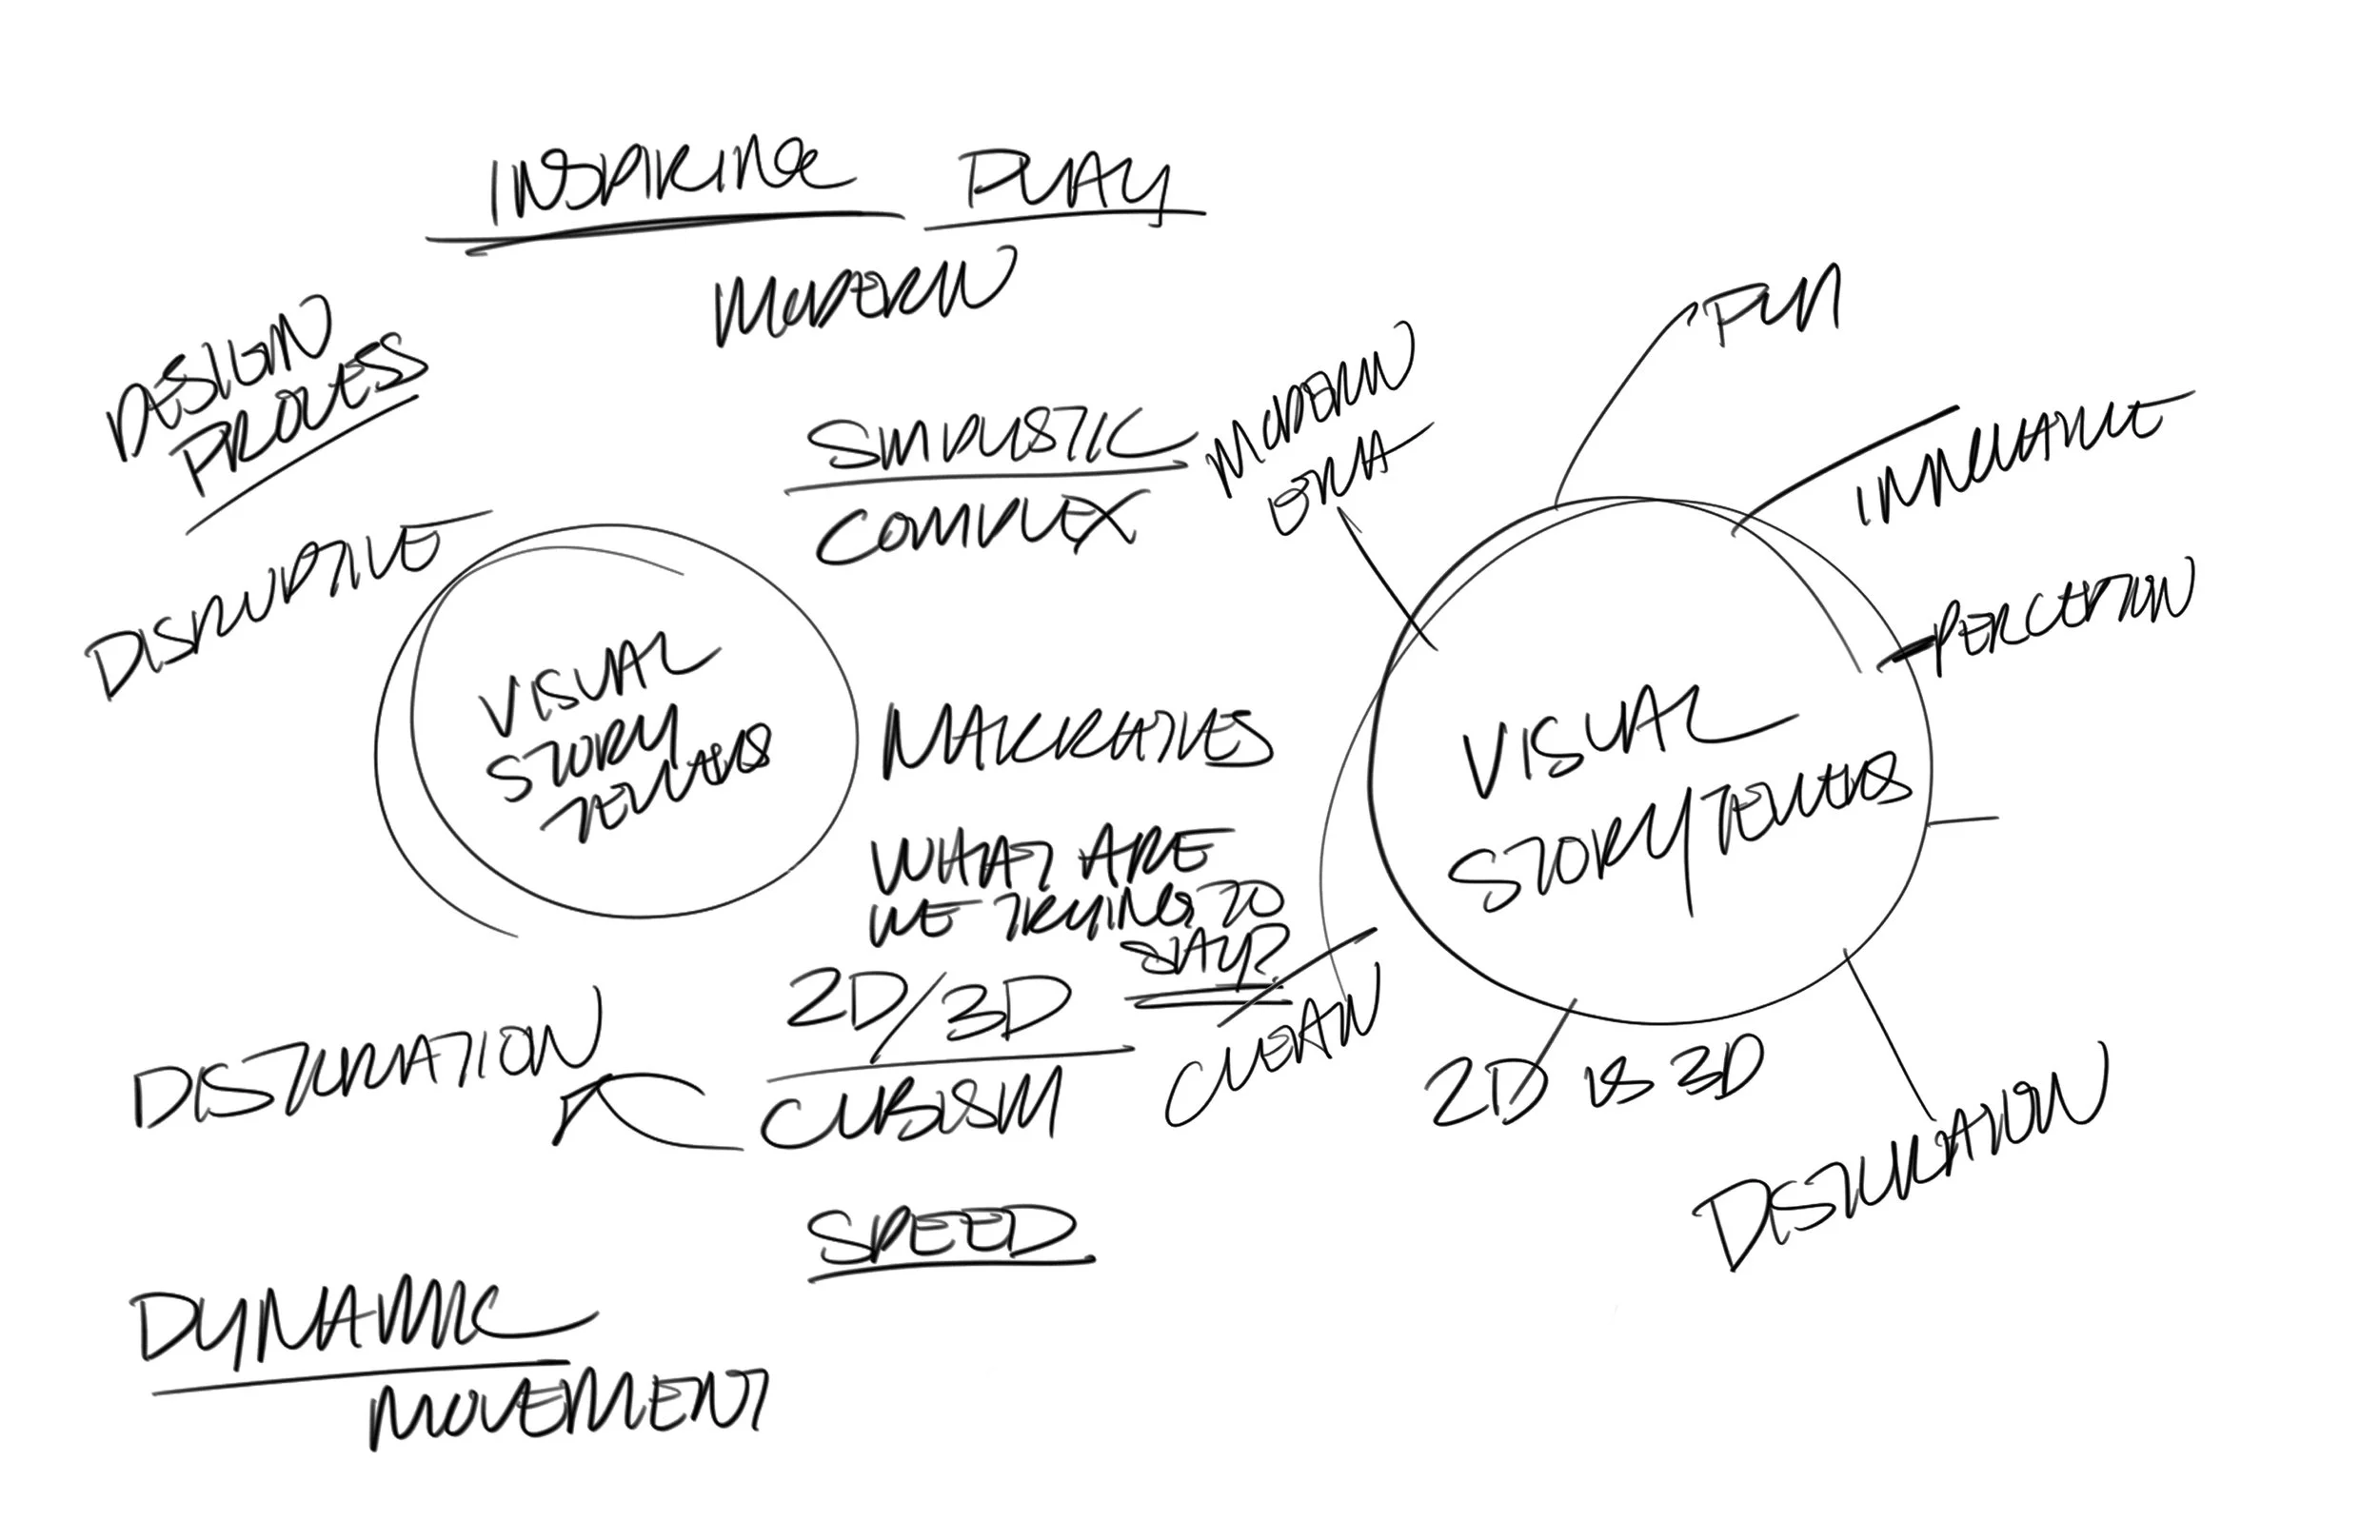 INSPIRING PLAY
MODERN
DESIGN
PROCESS
SIMPLISTIC
COMPLEX
DISRUPTIVE
VISUAL
STORY
TELLERS
NARRATIVES
WHAT ARE
WE TRYING TO
SAY?
2D/3D
CUBISM
DISTORATION
SPEED
DYNAMIC
MOVEMENT
FUN
MODERN
PERCEPTION
VISUAL
STORYTELLERS
CLEAN
2D VS 3D
DISTORATION